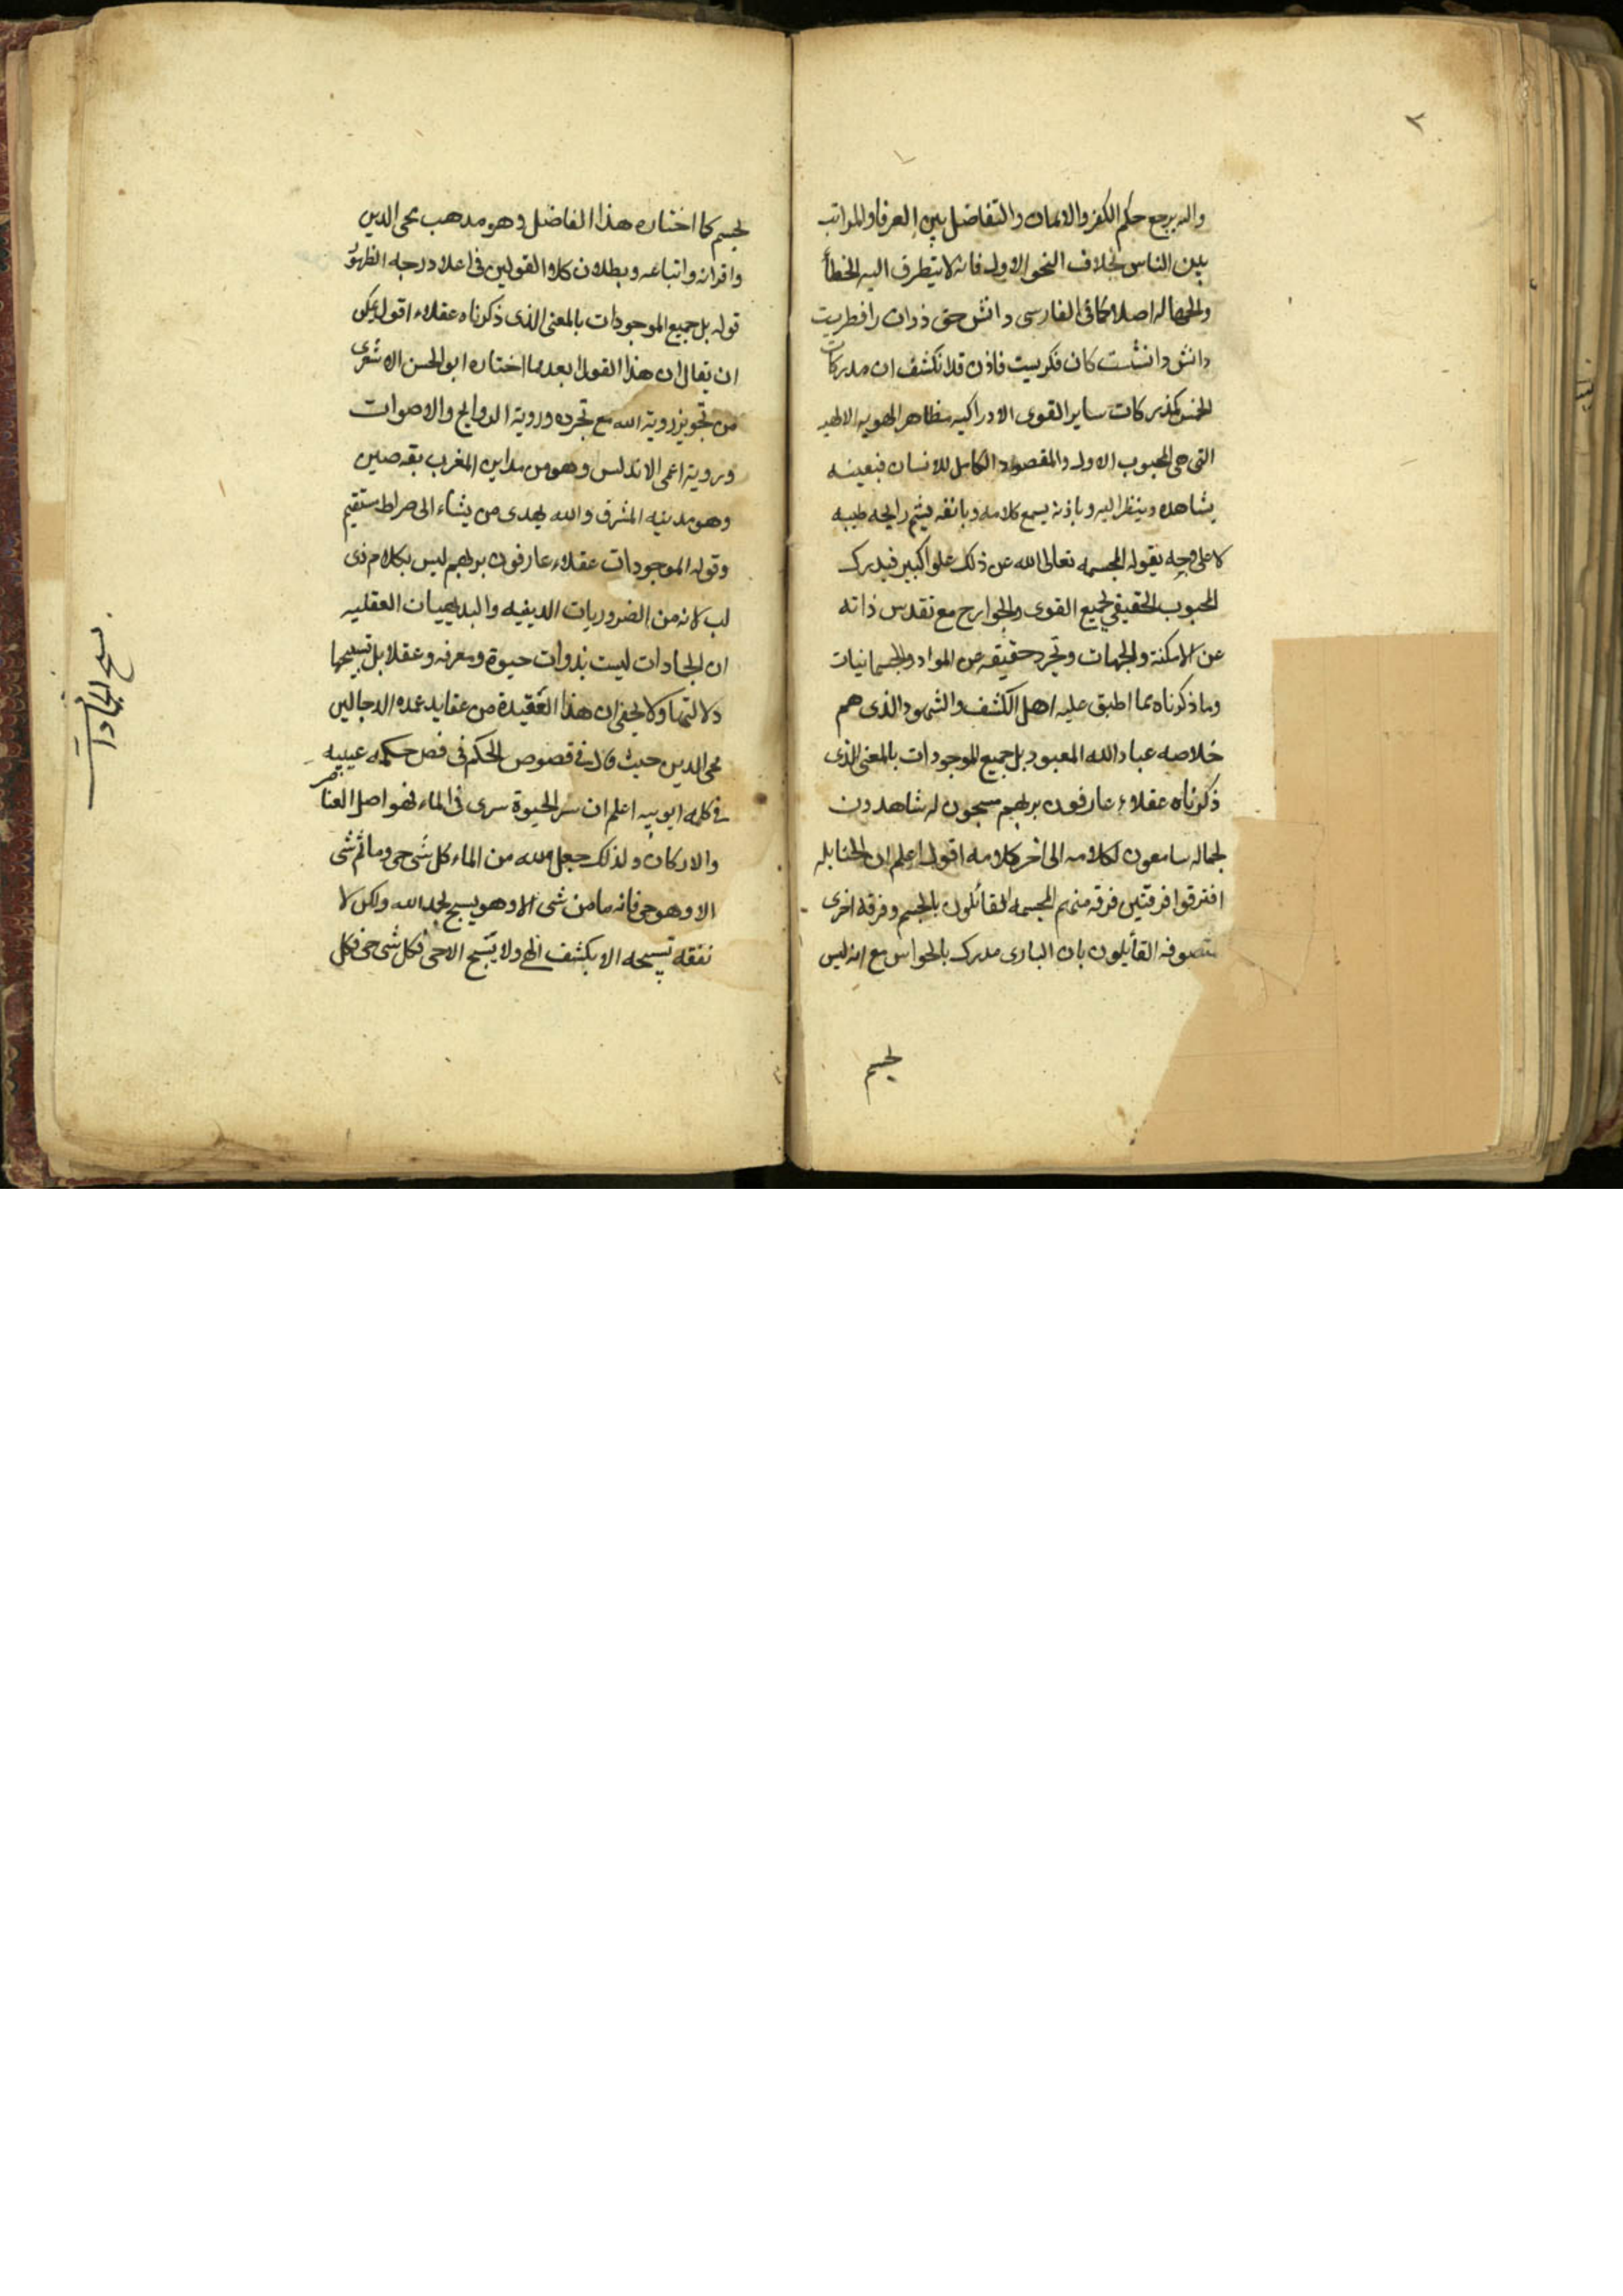 ٢
واليه يرجع حكم الكفر والايمان والتفاضل بين العرفا والمراتب
بين الناس بخلاف النحو الاول فانه لا يتطرق اليه الخطأ
والجهاله اصلا كما فى الفارسى دانش حق ذوات را فطريست
دانش دانشست كان فكريست فاذن قد انكشف ان مدركات
الخمس كمدركات ساير القوى الادراكيه مظاهر الهويه الالهيه
التى هى المحبوب الاول والمقصود الكامل للانسان فبعينه
يشاهده وينظر اليه وباذنه يسمع كلامه وبانفه يشم رايحه طيبه
لا على وجه يقوله المجسمه تعالى الله عن ذلك علوا كبيرا فيدرك
المحبوب الحقيقي بجميع القوى والجوارح مع تقدس ذاته
عن الامكنة والجهات وتجرد حقيقه عن المواد والجسمانيات
وما ذكرناه مما اطبق عليه اهل الكشف والشهود الذى هم
خلاصه عباد الله المعبود بل جميع الموجودات بالمعنى الذى
ذكرناه عقلاء عارفون بربهم مسبحون له شاهدون
لجماله سامعون لكلامه الى اخر كلامه اقول اعلم ان الحنابله
افترقوا فرقتين فرقه منهم المجسمه القائلون بالجسم وفرقه اخرى
متصوفه القائلون بان البارى مدرك بالحواس مع انه ليس
بجسم
بجسم كما اختاره هذا الفاضل وهو مذهب محى الدين
واقرانه واتباعه وبطلان كلا القولين فى اعلا درجه الظهور
قوله بل جميع الموجودات بالمعنى الذى ذكرناه عقلاء اقول يمكن
ان يقال ان هذا القول ابعد مما اختاره ابو الحسن الاشعرى
من تجويز روية الله مع تجرده وروية الروايح والاصوات
وروية اعمى الاندلس وهو من مداين المغرب بقه صين
وهو مدينه المشرق والله يهدى من يشاء الى صراط مستقيم
وقوله الموجودات عقلاء عارفون بربهم ليس بكلام ذى
لب لانه من الضروريات الدينيه والبديهيات العقليه
ان الجمادات ليست بذوات حيوة ومعرفه وعقلا بل تسبيحها
دلالتها ولا يخفى ان هذا العقيدة من عقايد عمده الدجالين
محى الدين حيث قال فى فصوص الحكم فى فص حكمه عيبيه
فى كلمه ايوبيه اعلم ان سر الحيوة سرى فى الماء فهو اصل العناصر
والاركان ولذلك جعل الله من الماء كل شى حى وما ثم شى
الا وهو حى فانه ما من شى الا وهو يسبح بحمد الله ولكن لا
نفقه تسبيحه الا بكشف الهى ولا يسبح الا حى فكل شى حى فكل
تسبيح الجمادات